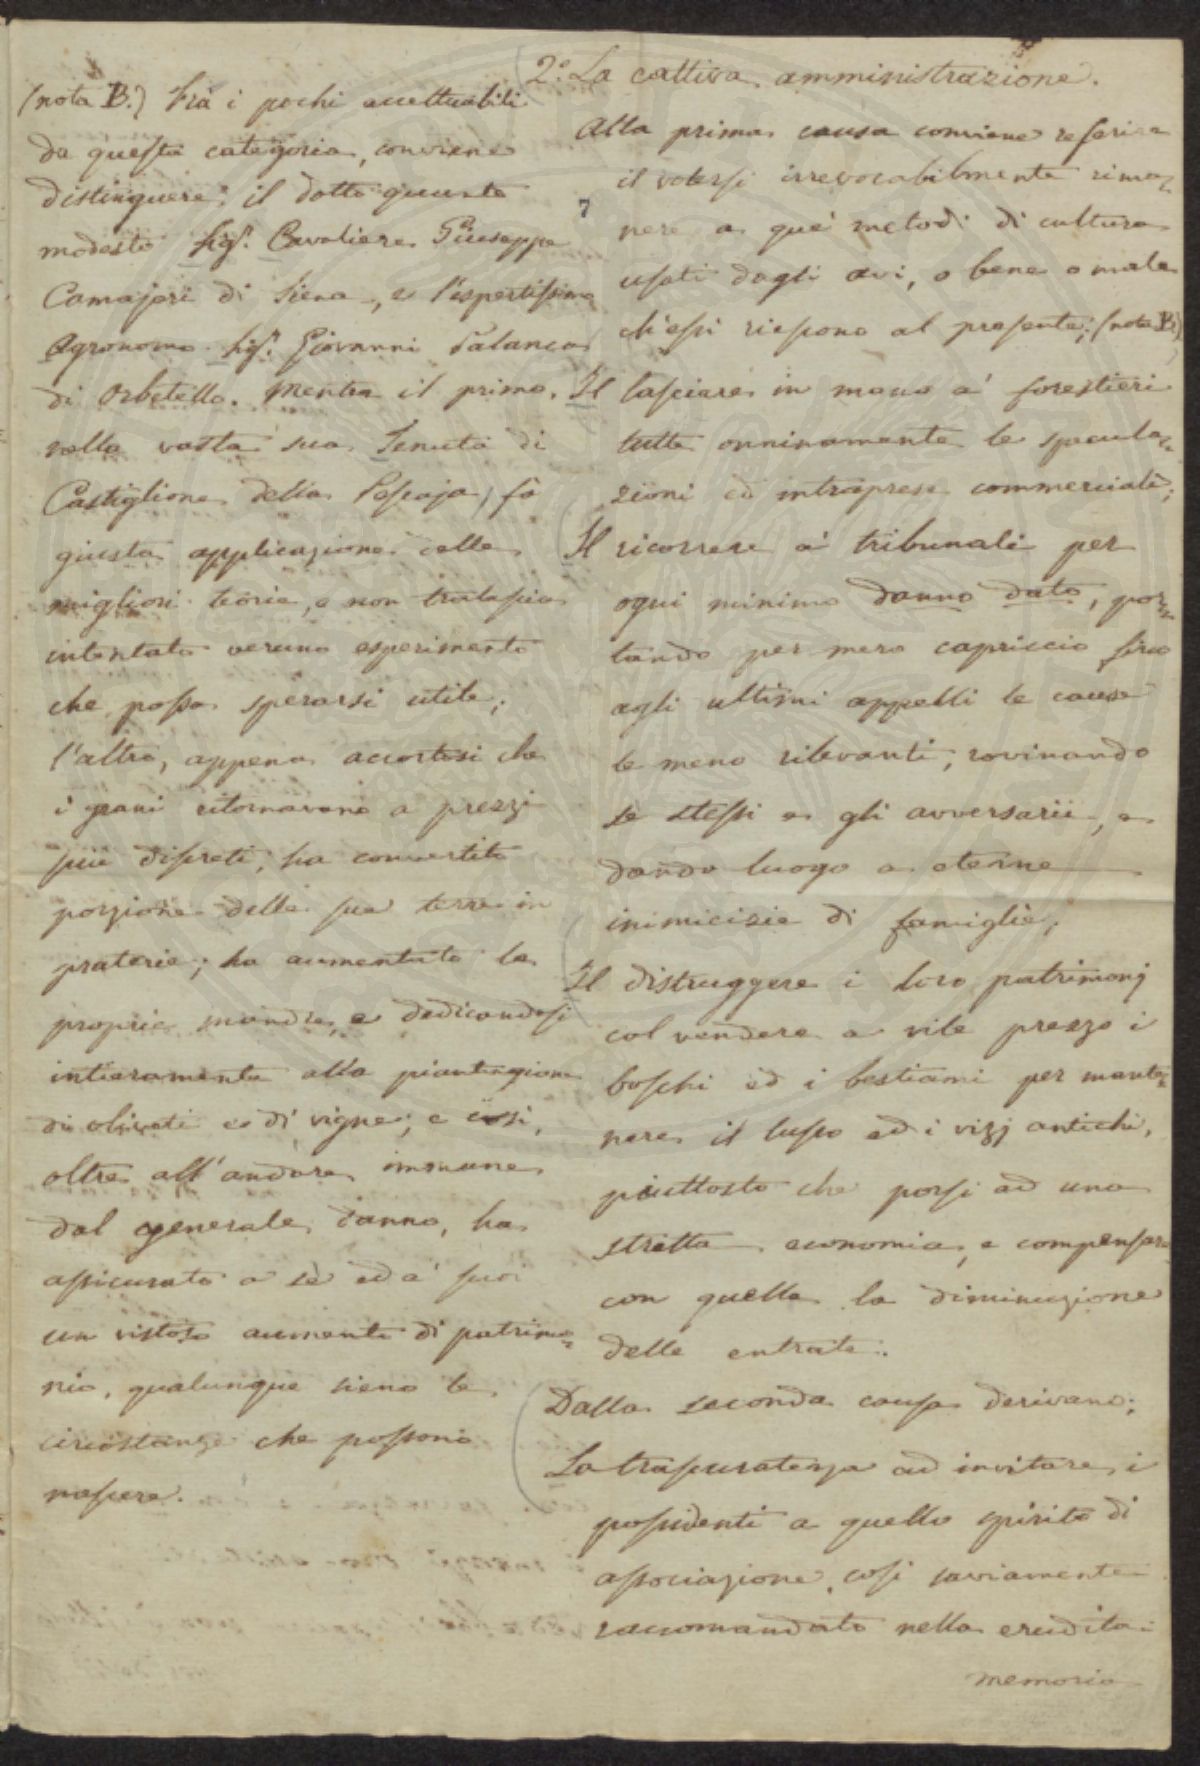 (nota B.) Frà i pochi eccettuabili
da questa categoria, conviene
distinguere; il dotto quanto
modesto Sig.r Cavaliere Giuseppe
Camajori di Siena, e l'espertissimo
Agronomo Sig.r Giovanni
di Orbetello. Mentre il primo,
nella vasta sua Tenuta di
Castiglione della Pescaja, fà
giusta applicazione delle
migliori teorie, e non tralascia
intentato veruno esperimento
che possa sperarsi utile;
l'altro, appena accortosi che
i grani ritornavano a prezzi
più discreti, ha convertito
porzione delle sue terre in
praterie; ha aumentato le
proprie mandre, e dedicandosi
intieramente alla piantagione
di oliveti e di vigne; e così,
oltre all'andare immune
dal generale danno, ha
assicurato a sè ed a' suoi
un vistoso aumento di patrimo=
nio, qualunque sieno le
circostanze che possono
nascere.
2.° La cattiva amministrazione.
Alla prima causa conviene referire
il volersi irrevocabilmente rima=
7
nere a que' metodi di cultura
usati dagli avi, o bene o male
ch'essi riescono al presente; (nota B.)
Il lasciare in mano a' forestieri
tutte onninamente le specula=
zioni ed intraprese commerciali;
Il ricorrere a' tribunali per
ogni minimo danno dato, por=
tando per mero capriccio fino
agli ultimi appelli le cause
le meno rilevanti; rovinando
se stessi e gli avversarii, e
dando luogo a eterne
inimicizie di famiglie;
Il distruggere i loro patrimonj
col vendere a vile prezzo i
boschi ed i bestiami per mante=
nere il lusso ed i vizj antichi,
piuttosto che porsi ad una
stretta economia, e compensare
con quella la diminuzione
delle entrate.
Dalla seconda causa derivano;
La trascuratezza ad invitare i
possidenti a quello spirito di
associazione, così saviamente
raccomandato nella erudita
memoria